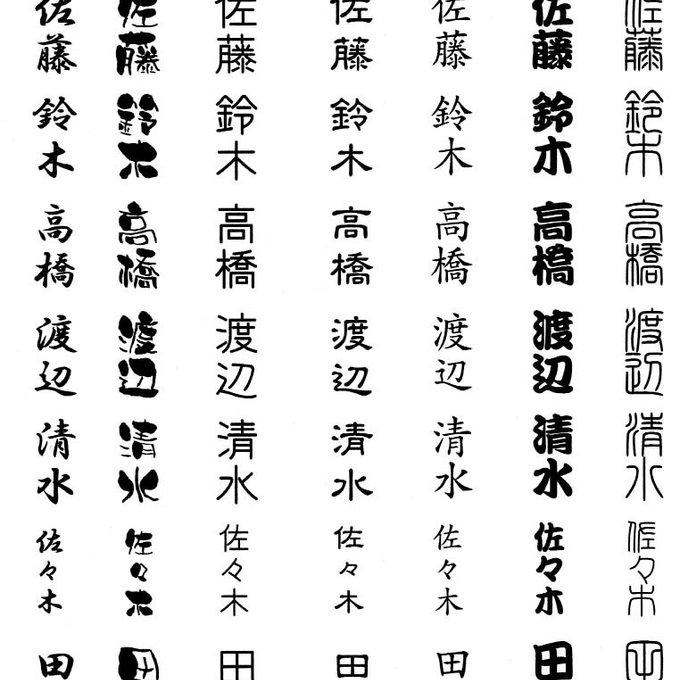 佐藤 佐藤 佐藤 佐藤 佐藤 佐藤 佐藤
鈴木 鈴木 鈴木 鈴木 鈴木 鈴木 鈴木
高橋 高橋 高橋 高橋 高橋 高橋 高橋
渡辺 渡辺 渡辺 渡辺 渡辺 渡辺 渡辺
清水 清水 清水 清水 清水 清水 清水
佐々木 佐々木 佐々木 佐々木 佐々木 佐々木 佐々木
田 田 田 田 田 田 田